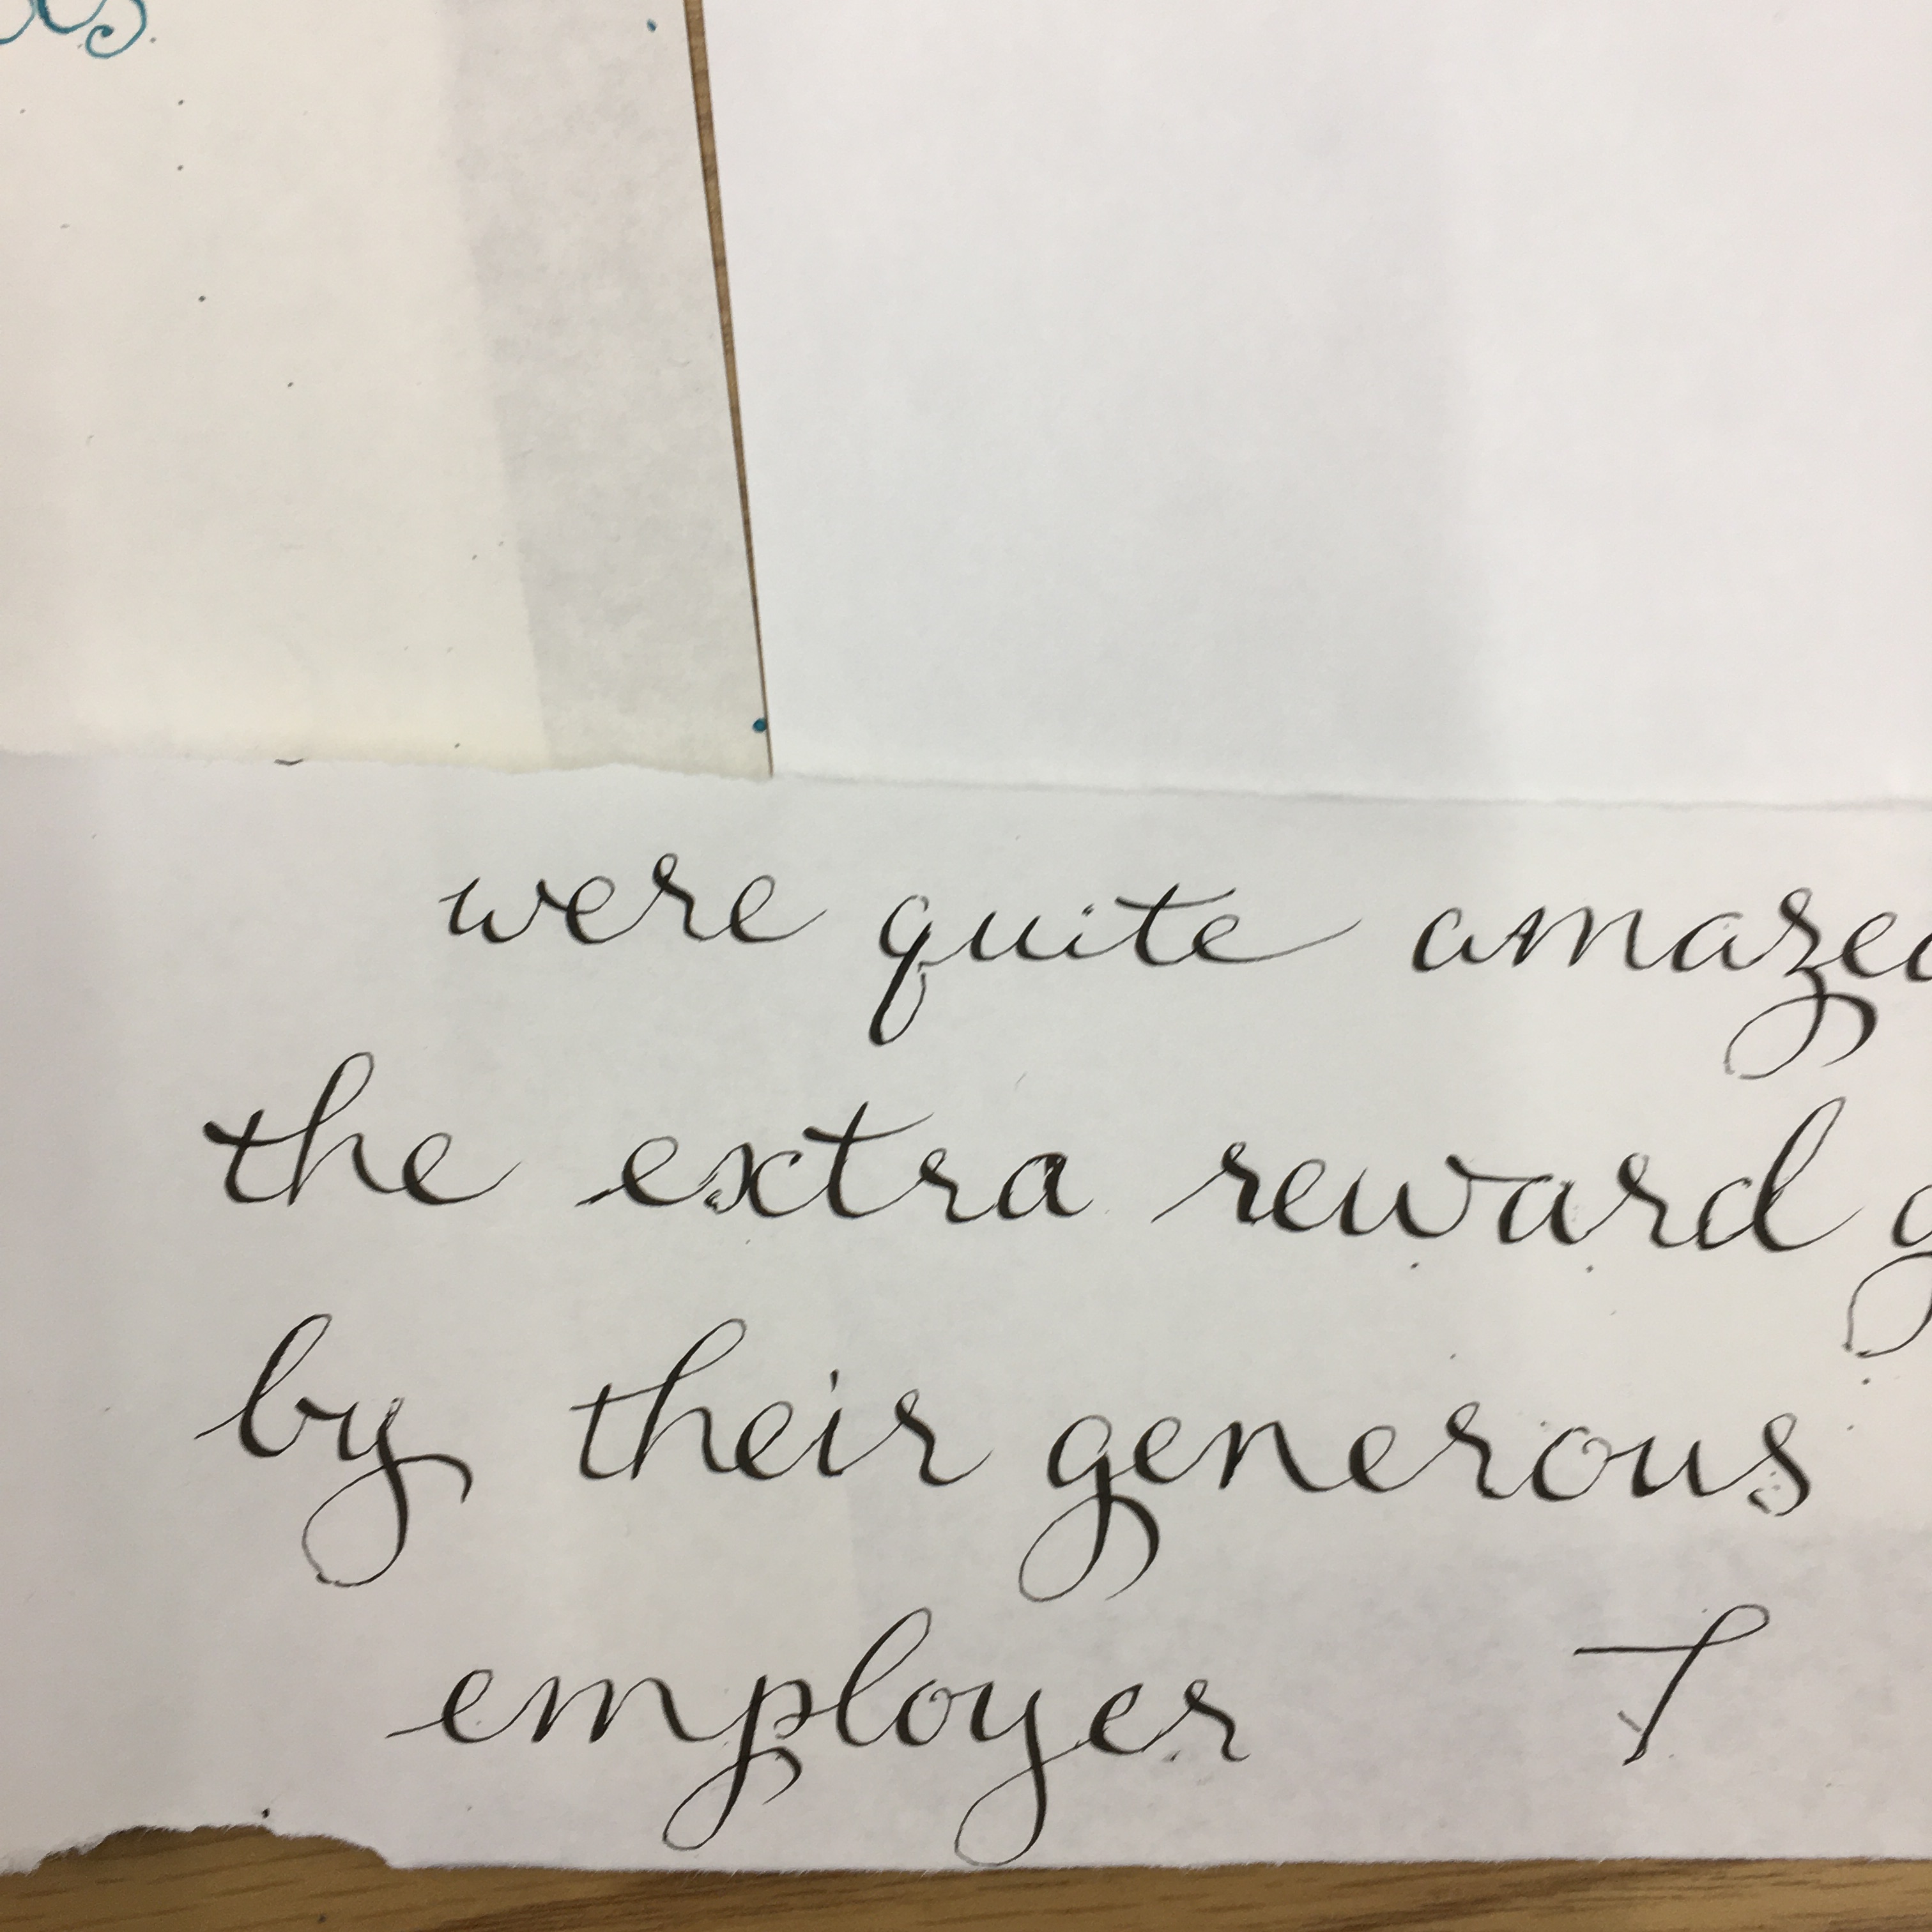 were quite amazed
the extra reward g
by their generous
employer T